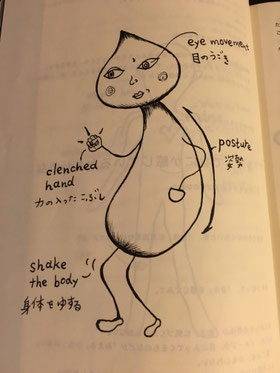 eye movement
目のうごき
posture
姿勢
clenched
hand
力の入ったこぶし
shake
the body
身体をゆする